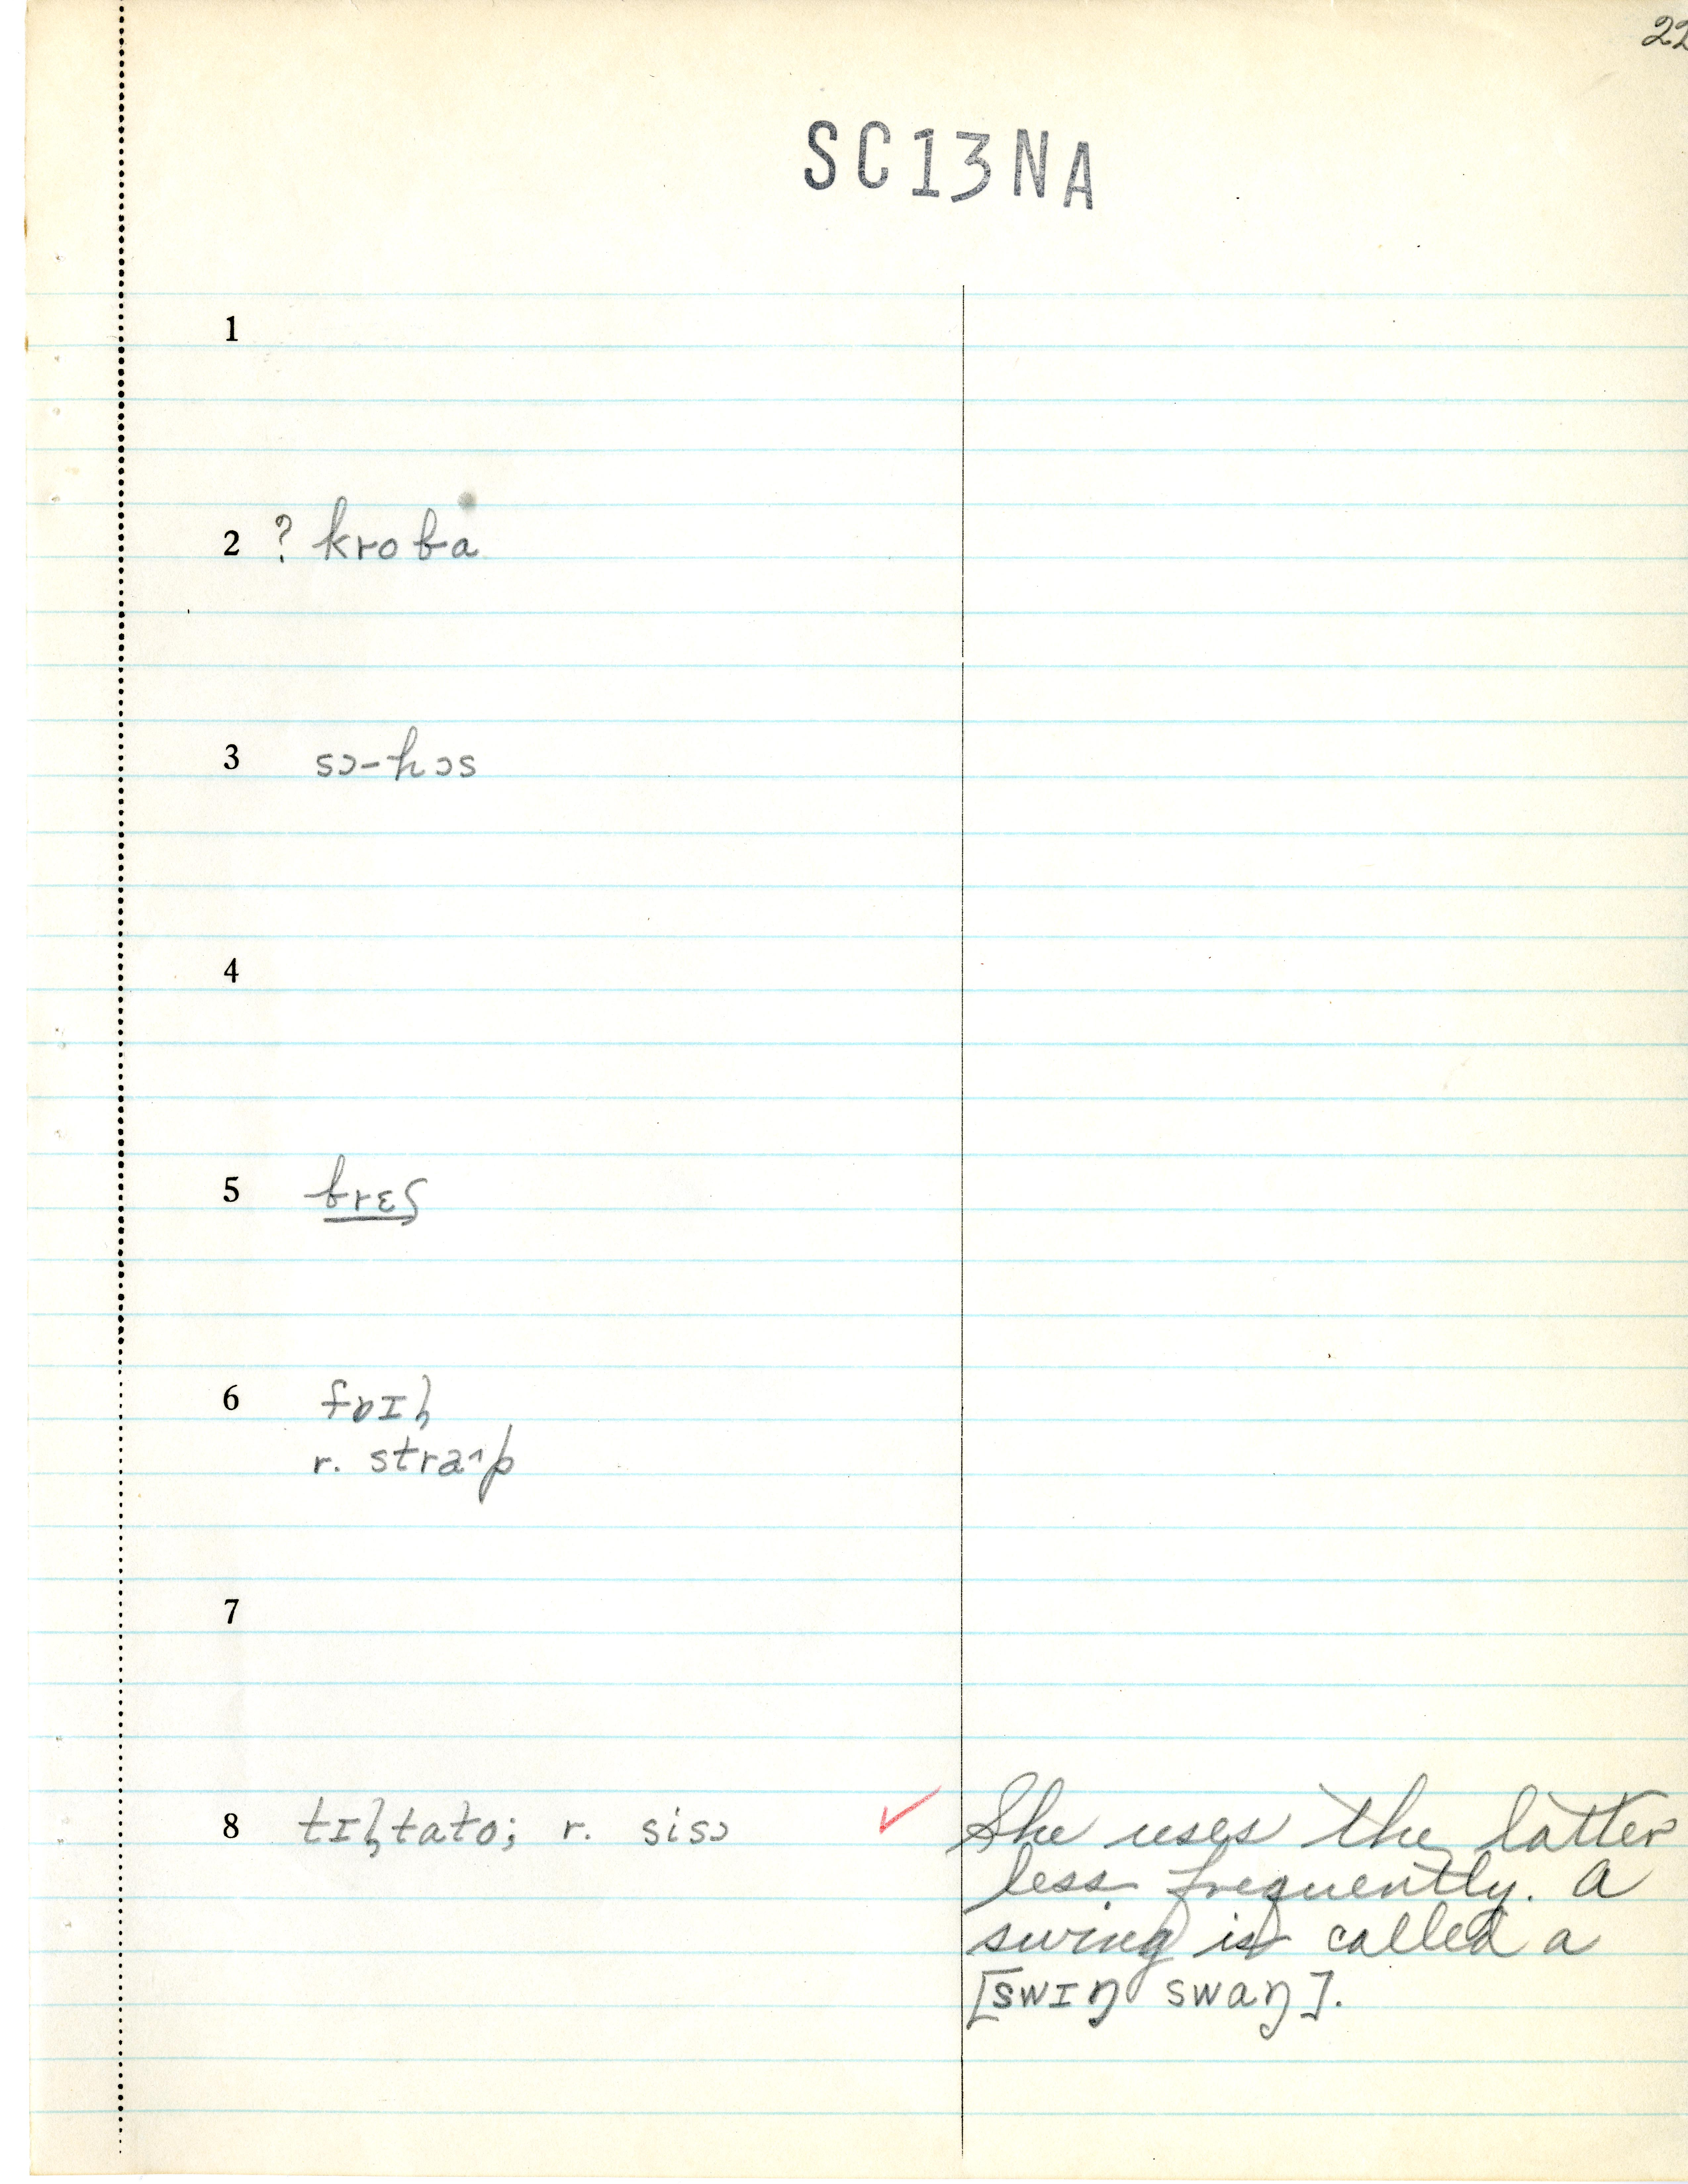 22
SC13NA
1
2 ? kroba
3 sɔ-hɔs
4
5 brɛʃ
6
r. straɪp
7
8 r. sisɔ ✓ She uses the latter
less frequently. A
swing is called a
[swɪŋ swaŋ].